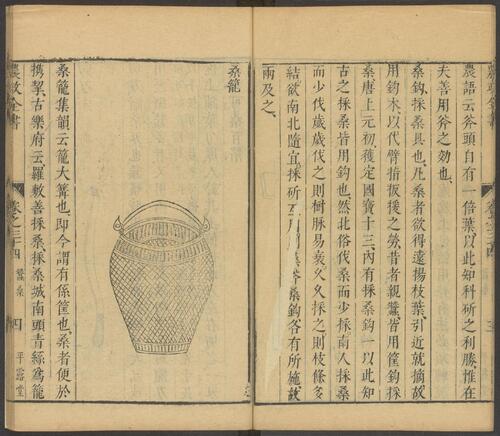 農政全書 卷之三十四 三
農語云、斧頭自有一倍葉、以此知科斫之利勝、惟在
夫善用斧之効也、
桑鈎、採桑具也、凡桑者欲得遠揚枝葉、引近就摘、故
用鈎木、以代臂指扳援之勞、昔者親蠶、皆用筐鈎採
桑、唐上元初、獲定國寶十三、內有採桑鈎一、以此知
古之採桑、皆用鈎也、然北俗伐桑而少採、南人採桑
而少伐、歲歲伐之、則樹脉易衰、久久採之、則枝條多
結、欲南北隨宜、採斫互用、則桑斧桑鈎、各有所施、故
兩及之、
桑籠
桑籠集韻云、籠大篝也、即今謂有係筐也、桑者便於
攜挈、古樂府云、羅敷善採桑、採桑城南頭、青絲爲籠
農政全書 卷之三十四 蠶桑 四 平露堂